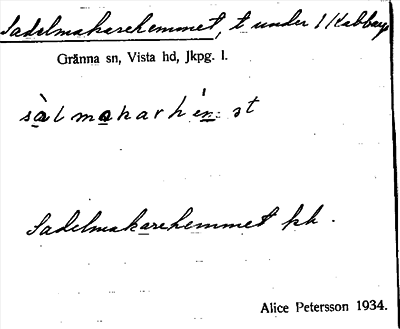 Sadelmakarehemmet, t under 1 Kabbarp
Gränna sn, Vista hd, Jkpg. l.
Sadelmakarehemmet kk.
Alice Petersson 1934.